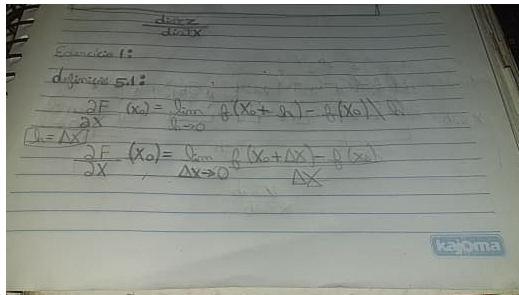 Exercício 1:
definição 5.1:
∂F/∂X (x₀) = lim h→0 f(x₀ + h) - f(x₀) \ h
h = ΔX
∂F/∂X (x₀) = lim Δx→0 f(x₀ + Δx) - f(x₀) / ΔX
kajoma